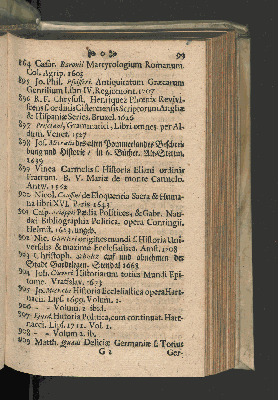 99
894 Cæsar. Baronii Martyrologium Romanum.
Col. Agrip. 1603
895 Jo. Phil. Pfeifferi. Antiquitatum Græcarum
Gentilium Libri IV. Regiomont. 1707
896 R. F. Chrysost. Henriquez Phœnix Revivi-
scens Ordinis Cisterciensis Scriptorum Angliæ
& Hispaniæ Series. Bruxel. 1626
897 Prisciani, Grammatici, Libri omnes. per Al-
dum. Venet. 1527
898 Jos. des alten Pommerlandes Beschrei-
bung und Historie / in 6. Bücher. Alt-Stettin.
1639
899 Vinea Carmeli s. Historia Eliani ordinis
Fratrum. B. V. Mariæ de monte Carmelo.
Antv. 1662
900 Nicol. Caussini de Eloquentia Sacra & Huma-
na libri XVI. Paris 1643
901 Casp. Scioppii Pædia Politices, & Gabr. Nau-
dæi Bibliographia Politica. opera Conringii.
Helmst. 1663. ungeb.
902 Nic. origines mundi s. Historia Uni-
versalis & maximè Ecclesiastica. Amst. 1708
903 Christoph. auf und abnehmen der
Stadt Gardelegen. Stendal 1668
904 Joh. Historiarum totius Mundi Epi-
tome. Vratislav. 1673
905 Jo. Historia Ecclesiastica opera Hart-
nacci. Lips. 1699. Volum. 1.
906 – Volum. 2. ibid.
907 Ejusd. Historia Politica, cum continuat. Hart-
nacci. Lips. 1711. Vol. 1.
908 – – Volum 2. ib.
909 Matth. Quadi Deliciæ Germaniæ s. Totius
G 2 Ger-